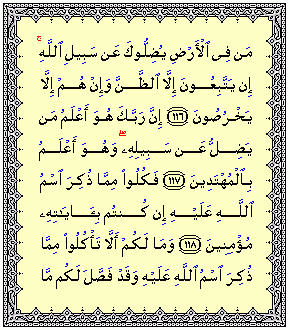 مَن فِى ٱلْأَرْضِ يُضِلُّوكَ عَن سَبِيلِ ٱللَّهِ ۚ
إِن يَتَّبِعُونَ إِلَّا ٱلظَّنَّ وَإِنْ هُمْ إِلَّا
يَخْرُصُونَ ﴿١١٦﴾ إِنَّ رَبَّكَ هُوَ أَعْلَمُ مَن
يَضِلُّ عَن سَبِيلِهِۦ ۖ وَهُوَ أَعْلَمُ
بِٱلْمُهْتَدِينَ ﴿١١٧﴾ فَكُلُوا۟ مِمَّا ذُكِرَ ٱسْمُ
ٱللَّهِ عَلَيْهِ إِن كُنتُم بِـَٔايَـٰتِهِۦ
مُؤْمِنِينَ ﴿١١٨﴾ وَمَا لَكُمْ أَلَّا تَأْكُلُوا۟ مِمَّا
ذُكِرَ ٱسْمُ ٱللَّهِ عَلَيْهِ وَقَدْ فَصَّلَ لَكُم مَّا